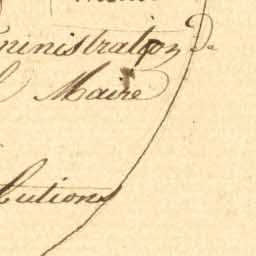 ministration de
Maire
cutions